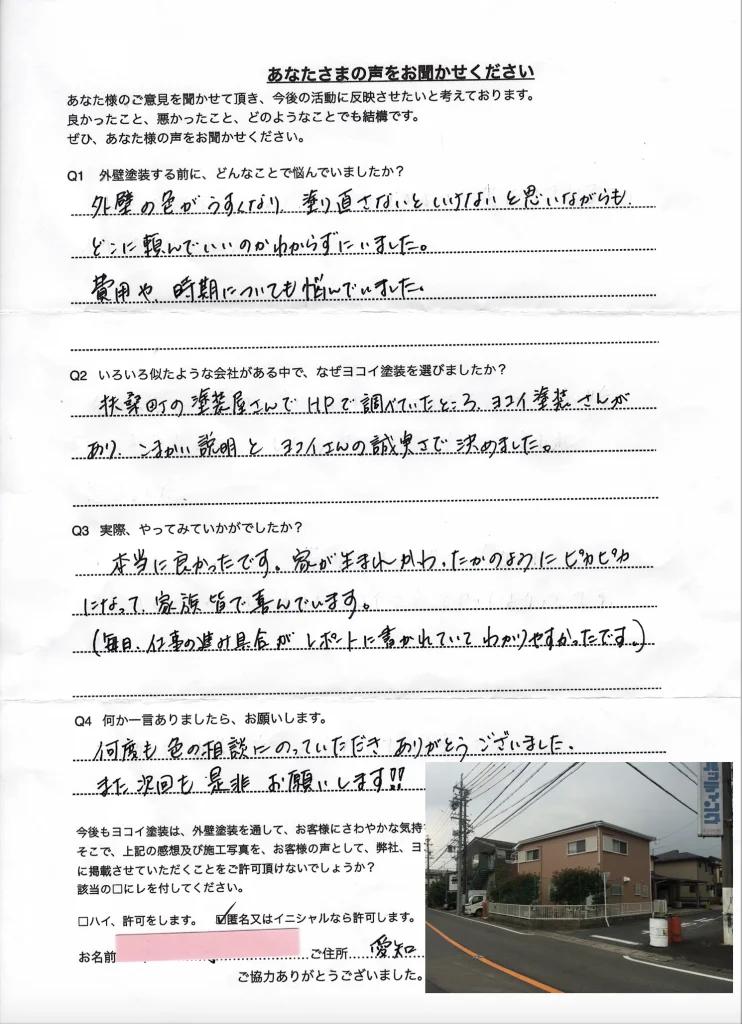 あなたさまの声をお聞かせください
あなた様のご意見を聞かせて頂き、今後の活動に反映させたいと考えております。
良かったこと、悪かったこと、どのようなことでも結構です。
ぜひ、あなた様の声をお聞かせください。
Q1 外壁塗装する前に、どんなことで悩んでいましたか？
外壁の色がうすくなり、塗り直さないといけないと思いながらも、
どこに頼んでいいのかわからずにいました。
費用や、時期についても悩んでいました。
Q2 いろいろ似たような会社がある中で、なぜヨコイ塗装を選びましたか？
扶桑町の塗装屋さんでHPで調べていたところ、ヨコイ塗装さんが
あり、こまかい説明とヨコイさんの誠実さで決めました。
Q3 実際、やってみていかがでしたか？
本当に良かったです。家が生まれかわったかのようにピカピカ
になって、家族皆で喜んでいます。
(毎日、仕事の進み具合がレポートに書かれていてわかりやすかったです。)
Q4 何か一言ありましたら、お願いします。
何度も色の相談にのっていただきありがとうございました。
また次回も是非お願いします!!
今後もヨコイ塗装は、外壁塗装を通して、お客様にさわやかな気持
そこで、上記の感想及び施工写真を、お客様の声として、弊社、ヨ
に掲載させていただくことをご許可頂けないでしょうか？
該当の□にレを付してください。
□ハイ、許可をします。 ☑匿名又はイニシャルなら許可します。
お名前 ご住所 愛知
ご協力ありがとうございました。